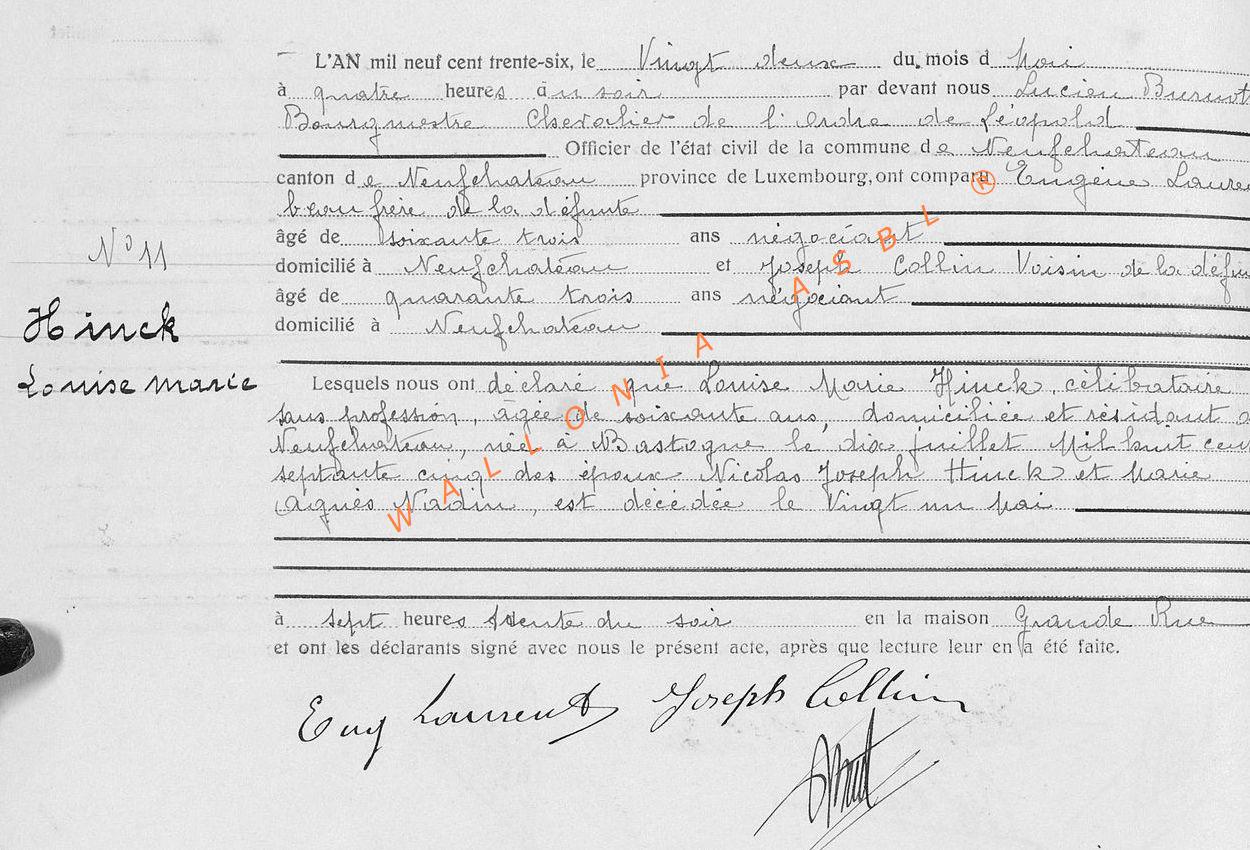 L'AN mil neuf cent trente-six, le Vingt deux du mois d Mai
à quatre heures du soir par devant nous Lucien
Bourgmestre Chevalier de l'Ordre de Léopold
Officier de l'état civil de la commune de Neufchateau
canton de Neufchateau province de Luxembourg, ont comparu Eugène
beau frère de la défunte
N° 11
âgé de soixante trois ans négociant
domicilié à Neufchateau et Joseph Collin Voisin de la
âgé de quarante trois ans négociant
Hinck
domicilié à Neufchateau
Louise Marie
Lesquels nous ont déclaré que Louise Marie Hinck, célibataire
sans profession, âgée de soixante ans, domiciliée et résidant
Neufchateau, née à Bastogne le dix juillet Mil huit
septante cinq des époux Nicolas Joseph Hinck et Marie
Agnès Nadin, est décédée le Vingt un Mai
à sept heures trente du soir en la maison Grande Rue
et ont les déclarants signé avec nous le présent acte, après que lecture leur en a été faite.
Eug Laurent Joseph Collin
WALLONIA ASBL ®